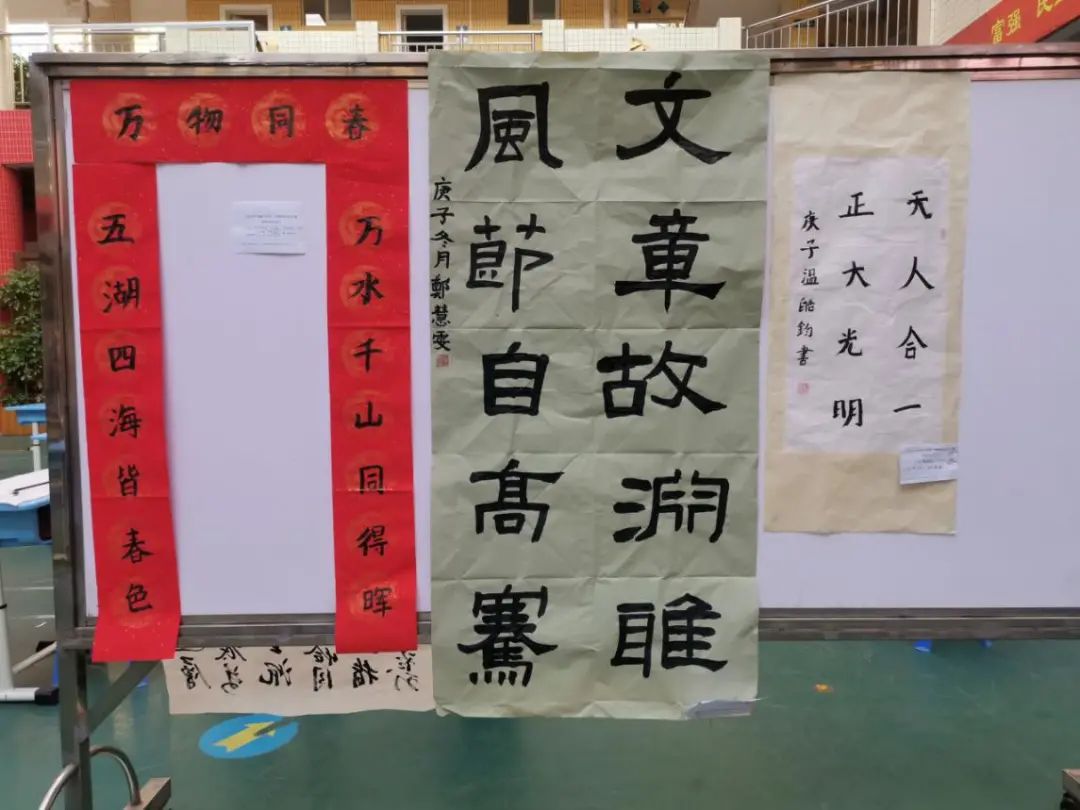 富强 民
万物同春
万水千山同得晖
五湖四海皆春色
文章故渊雅
風節自髙騫
庚子冬月鄭慧雯
天人合一
正大光明
庚子温皓鈞書